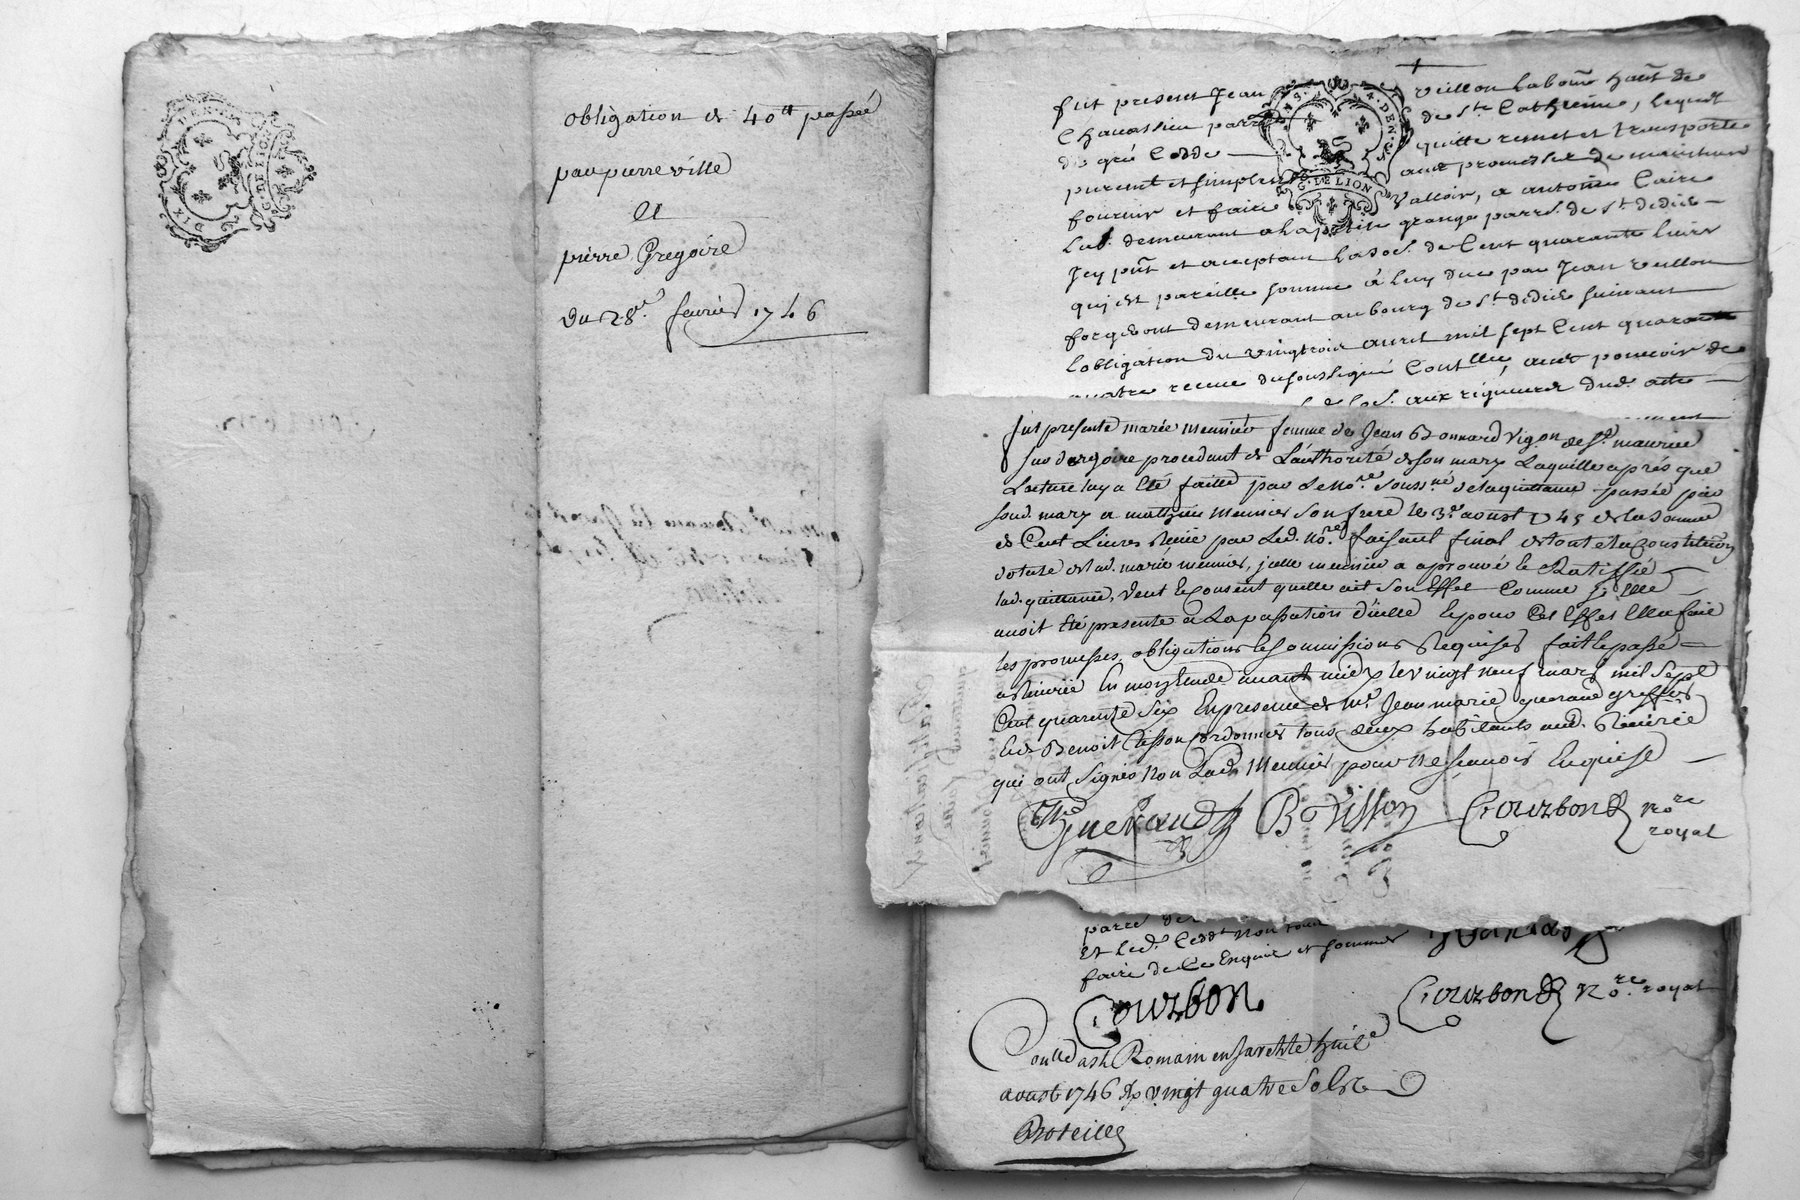 DIX DEN
G. DE LION
obligation de 40tt passée
par pierre ville
A
pierre Gregoire
du 28e. fevrier 1746
fut present Jean veillon labour. hant de
Chavassieu parr. de Ste Catherine, lequel
de gré Cedde quitte remet et transporte
purem̃t et simplem̃t avec promesse de maintenir
fournir et faire valloir, a antoine Caire
Lab. demeurant a la petite grange parr. de st. didier
Jcy pn̄t et acceptant la so. de Cent quarante livres
qui est pareille somme à luy due par Jean veillon
forgeront demeurant au bourg de st. didier suivant
lobligation du vingtrois avril mil sept Cent quarante
quatre receue du soussigné avec pouvoir de
aux rigueurs dud. acte
MS. DEN.
G. DE LION
fut presente marie meunier femme de Jean Bonnard vigon de st. maurice
sur dargoire procedant de L'authorité de son mary Laquelle aprés que
Lecture luy a été faitte par le Nore. souss.né de la quittance passée par
sond. mary a mathieu meunier son frere le 3e. aoust 1745 de la somme
de Cent Livres Receüe par Led. nore. faisant final de toute la Constitution
dotale de lad. marie meunier, jcelle meunier a aprouvé & Ratiffié
lad. quittance, veut & consent quelle ait son Effet Comme si elle
avoit été presente a La passation d'icelle & pour Cet Effet Elle a fait
les promesses, obligations & soumissions Requises fait & passé
a Riverie En mon Etude avant midy le vingt neuf mars mil sept
Cent quarente six En presence de mr. Jean marie gueraud greffier
Et de Benoit Tisson Cordonnier tous deux habitants aud. Riverie
qui ont signés non Lad. Meunier pour ne sçavoir Enquise
Gueraud B Tisson Courbon nore
royal
parre de
Et led. Cedd.t non
faire de Ce Enquis et sommé
Courbon Courbon nore. royal
aoust 1746 Rx vingt quatre sols
Broteille